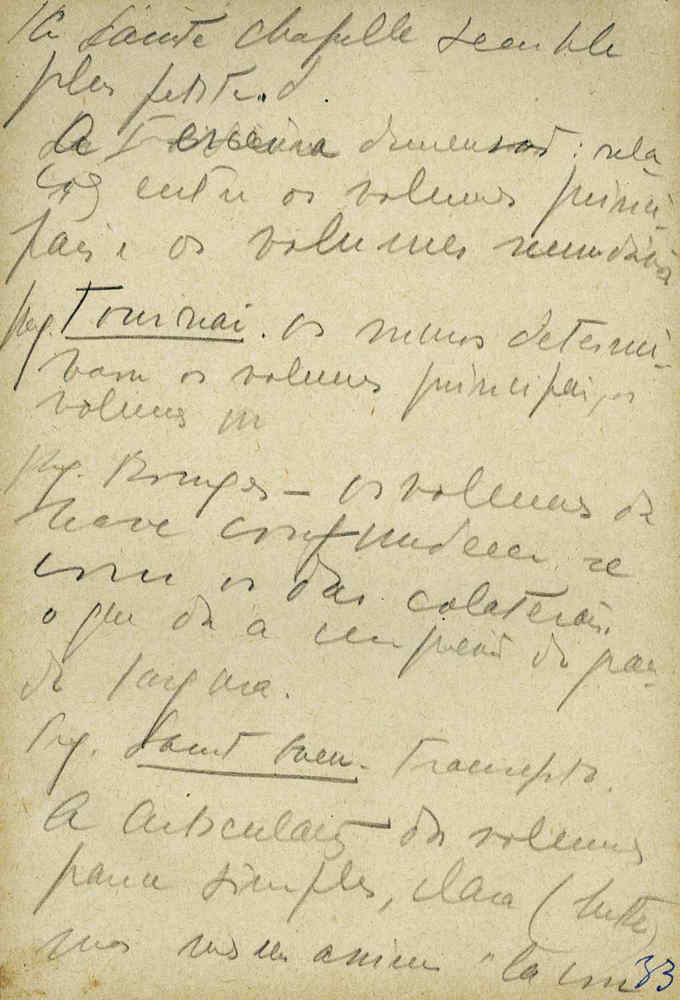 sainte chapelle semble
plus petite.
A Terceira dimensão: rela-
ção entre os volumes princi-
pais e os volumes secundários
Tournai. os muros determi-
nam os volumes principais, os
volumes
Bruges — os volumes da
nave confundem se
com os das colaterais.
o que dá a impressão de gran-
de largura.
Saint Ouen - Transepto.
A articulação dos volumes
simples, clara (
mas "la
33